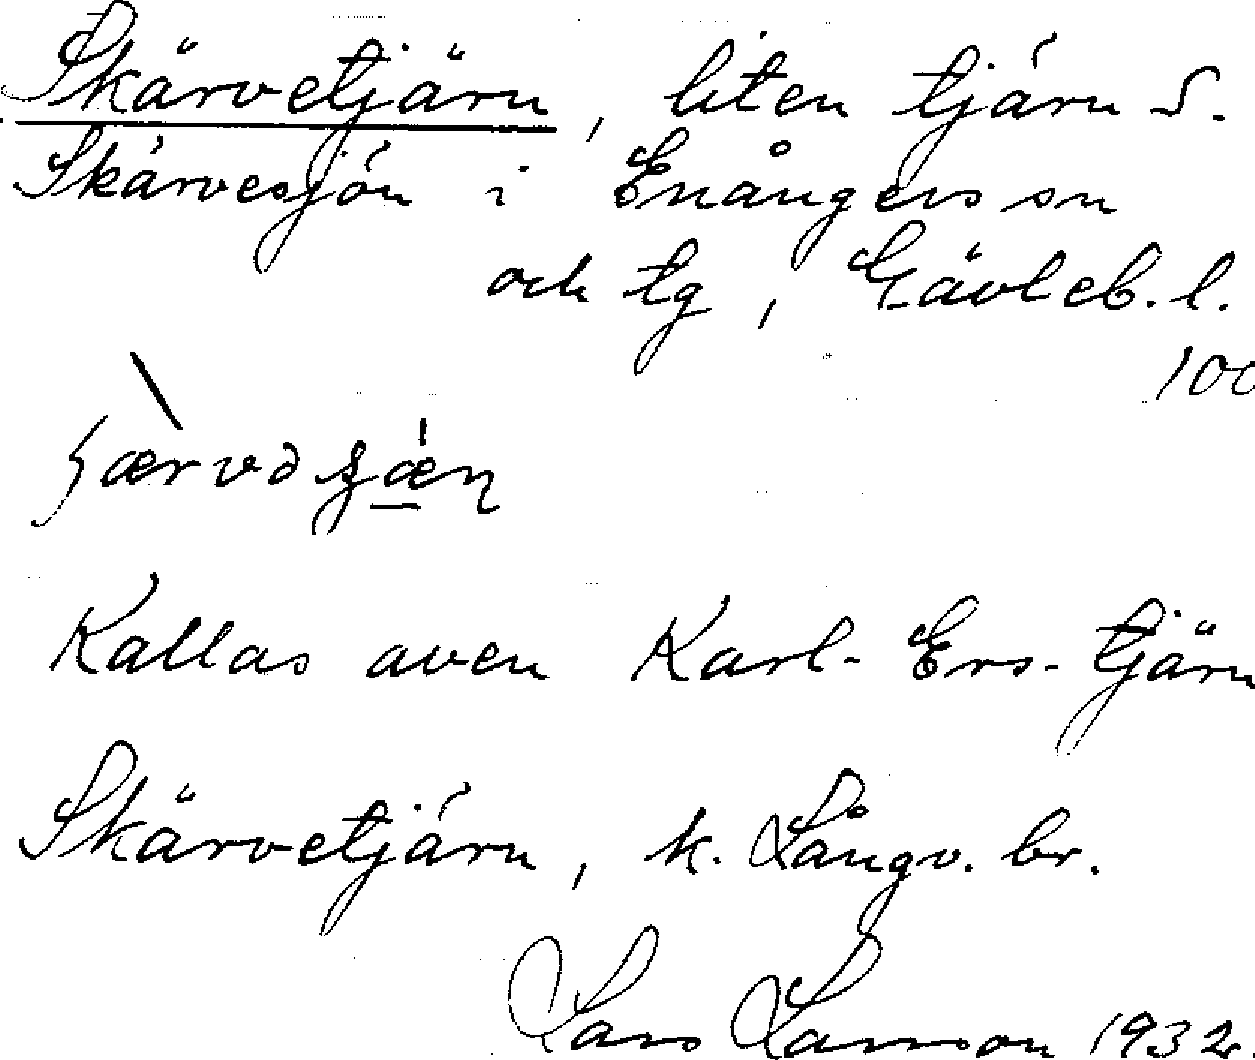 Skärvetjärn, liten tjärn S.
Skärvesjön i Enångers sn
och tg, Gävleb. l.
100
Kallas även Karl-Ers-tjärn
Skärvetjärn, k. Långv. br.
Lars Larsson 1932